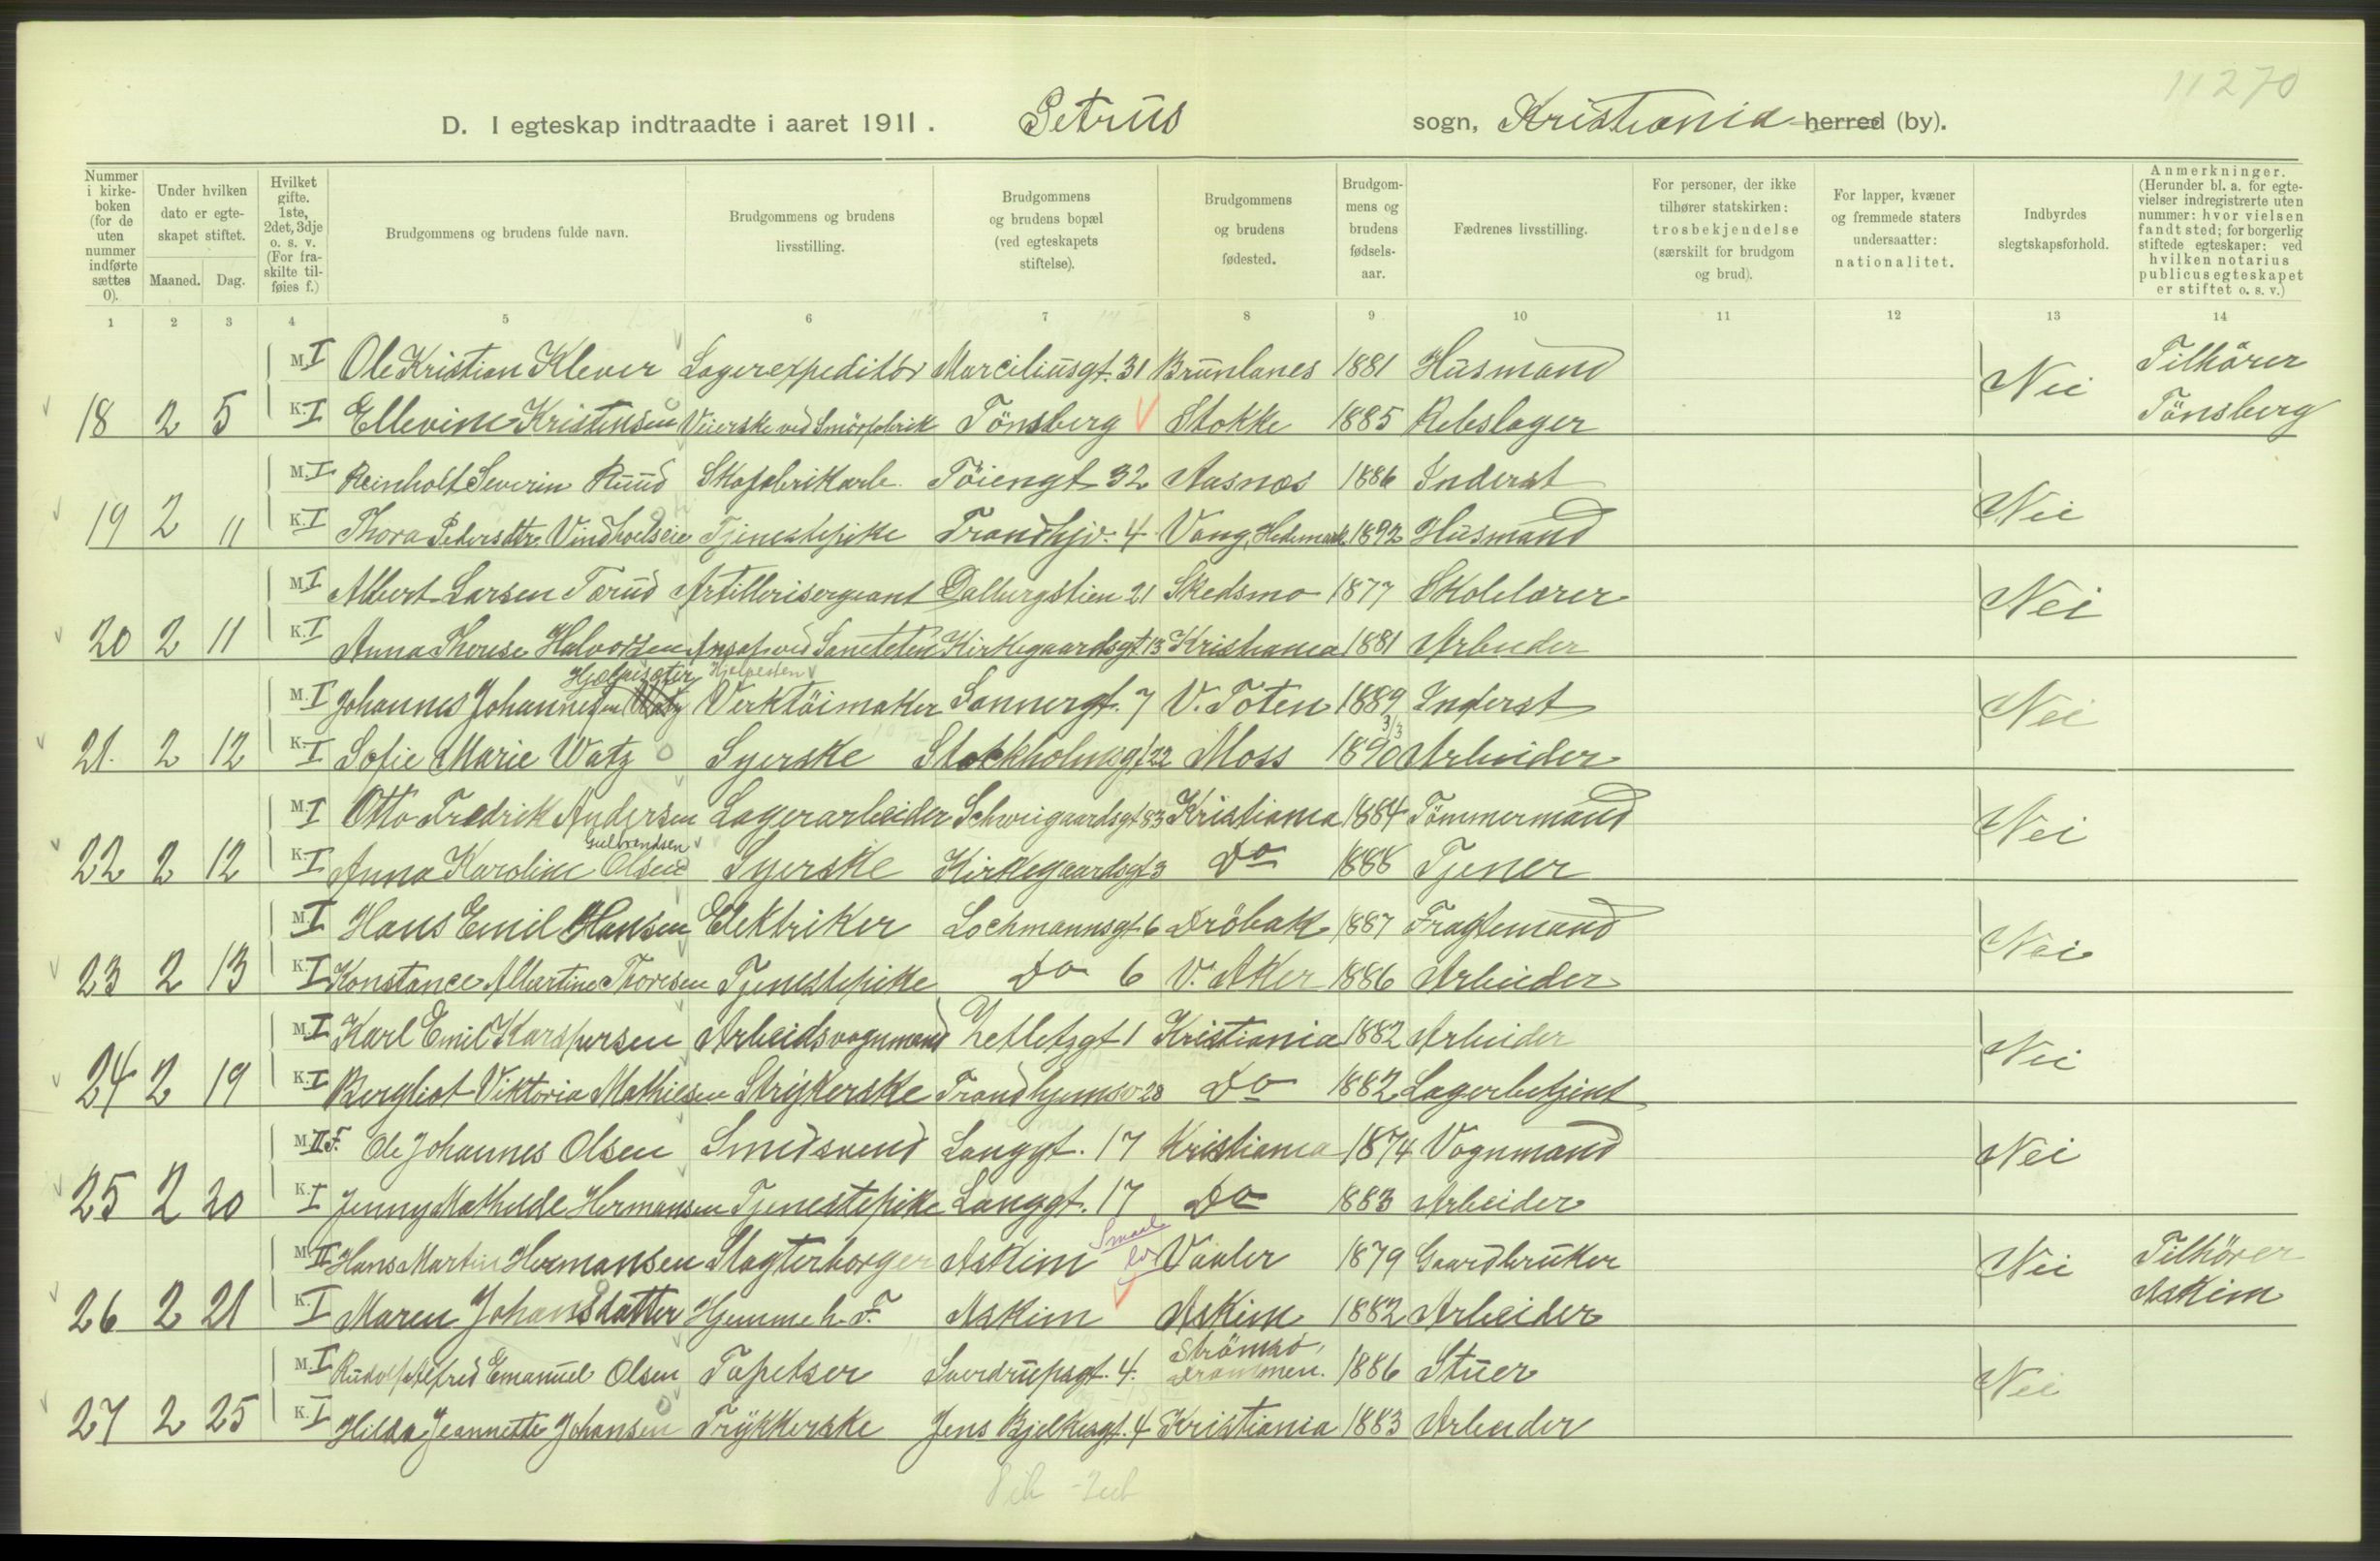 11270
D. I egteskap indtraadte i aaret 1911. Petrus sogn, Kristiania herred (by).
Nummer i kirkeboken (for de uten nummer indførte sættes 0).
Under hvilken dato er egteskapet stiftet.
Maaned. Dag.
Hvilket gifte. 1ste, 2det, 3dje o. s. v. (For fraskilte tilføies f.)
Brudgommens og brudens fulde navn.
Brudgommens og brudens livsstilling.
Brudgommens og brudens bopæl (ved egteskapets stiftelse).
Brudgommens og brudens fødested.
Brudgommens og brudens fødselsaar.
Fædrenes livsstilling.
For personer, der ikke tilhører statskirken: trosbekjendelse (særskilt for brudgom og brud).
For lapper, kvæner og fremmede staters undersaatter: nationalitet.
Indbyrdes slegtskapsforhold.
Anmerkninger. (Herunder bl. a. for egtevielser indregistrerte uten nummer: hvor vielsen fandt sted; for borgerlig stiftede egteskaper: ved hvilken notarius publicus egteskapet er stiftet o. s. v.)
1 2 3 4 5 6 7 8 9 10 11 12 13 14
M. I Ole Kristian Klever Lagerexpeditør Marciliusgt. 31 Brunlanes 1881 Husmand Nei Tilhører
18 2 5 K. I Ellevine Kristensen Veierske ved Smörfabrik Tönsberg Stokke 1885 Rebslager Tönsberg
M. I Reinholt Severin Ruud Skofabrikarb. Töiengt 32 Aasnes 1886 Inderst Nei
19 2 11 K. I Thora Pedersdtr. Vindhoelseie Tjenestepike Trondhjv. 4 Vang, Hedemark. 1892 Husmand
M. I Albert Larsen Torud Artillerisergeant Dalbergstien 21 Skedsmo 1877 Skolelærer Nei
20 2 11 K. I Anna Therese Halvorsen Ansat ved Saniteten Kirkegaardsgt. 13 Kristiania 1881 Arbeider
Hjelpesten
M. I Johannes Johannesen Watz Verktöimaker Sannergt. 7 V. Toten 1889 Inderst Nei
3/3
21. 2 12 K. I Sofie Marie Watz Syerske Stockholmsgt 22 Moss 1890 Arbeider
M. I Otto Fredrik Andersen Lagerarbeider Schweigaardsgt 83 Kristiania 1884 Tömmermand Nei
Gulbrandsen
22 2 12 K. I Anna Karoline Olsen Syerske Kirkegaardsgt 3 Do 1888 Tjener
M. I Hans Emil Hansen Elektriker Lochmannsgt 6 Dröbak 1887 Fragtemand Nei
23 2 13 K. I Konstance Albertine Thoresen Tjenestepike Do 6 V. Aker 1886 Arbeider
M. I Karl Emil Karspersen Arbeidsvognmand Zetletzgt 1 Kristiania 1882 Arbeider Nei
24 2 19 K. I Bergliot Viktoria Mathiesen Strykerske Trondhjemsv 28 Do 1882 Lagerbetjent
M. II F. Ole Johannes Olsen Smedsvend Langgt. 17 Kristiania 1874 Vognmand Nei
25 2 20 K. I Jenny Mathilde Hermansen Tjenestepike Langgt. 17 Do 1883 Arbeider
M. II Hans Martin Hermansen Slagterborger Askim Vaaler 1879 Gaardbruker Nei Tilhörer
26 2 21 K. I Maren Johansdatter Hjemme h. F. Askim Askim 1882 Arbeider Askim
M. I Rudolf Alfred Emanuel Olsen Tapetser Sverdrupsgt. 4. Strömsö, Drammen. 1886 Stuer Nei
27 2 25 K. I Hilda Jeannette Johansen Trykkerske Jens Bjelkesgt. 4 Kristiania 1883 Arbeider